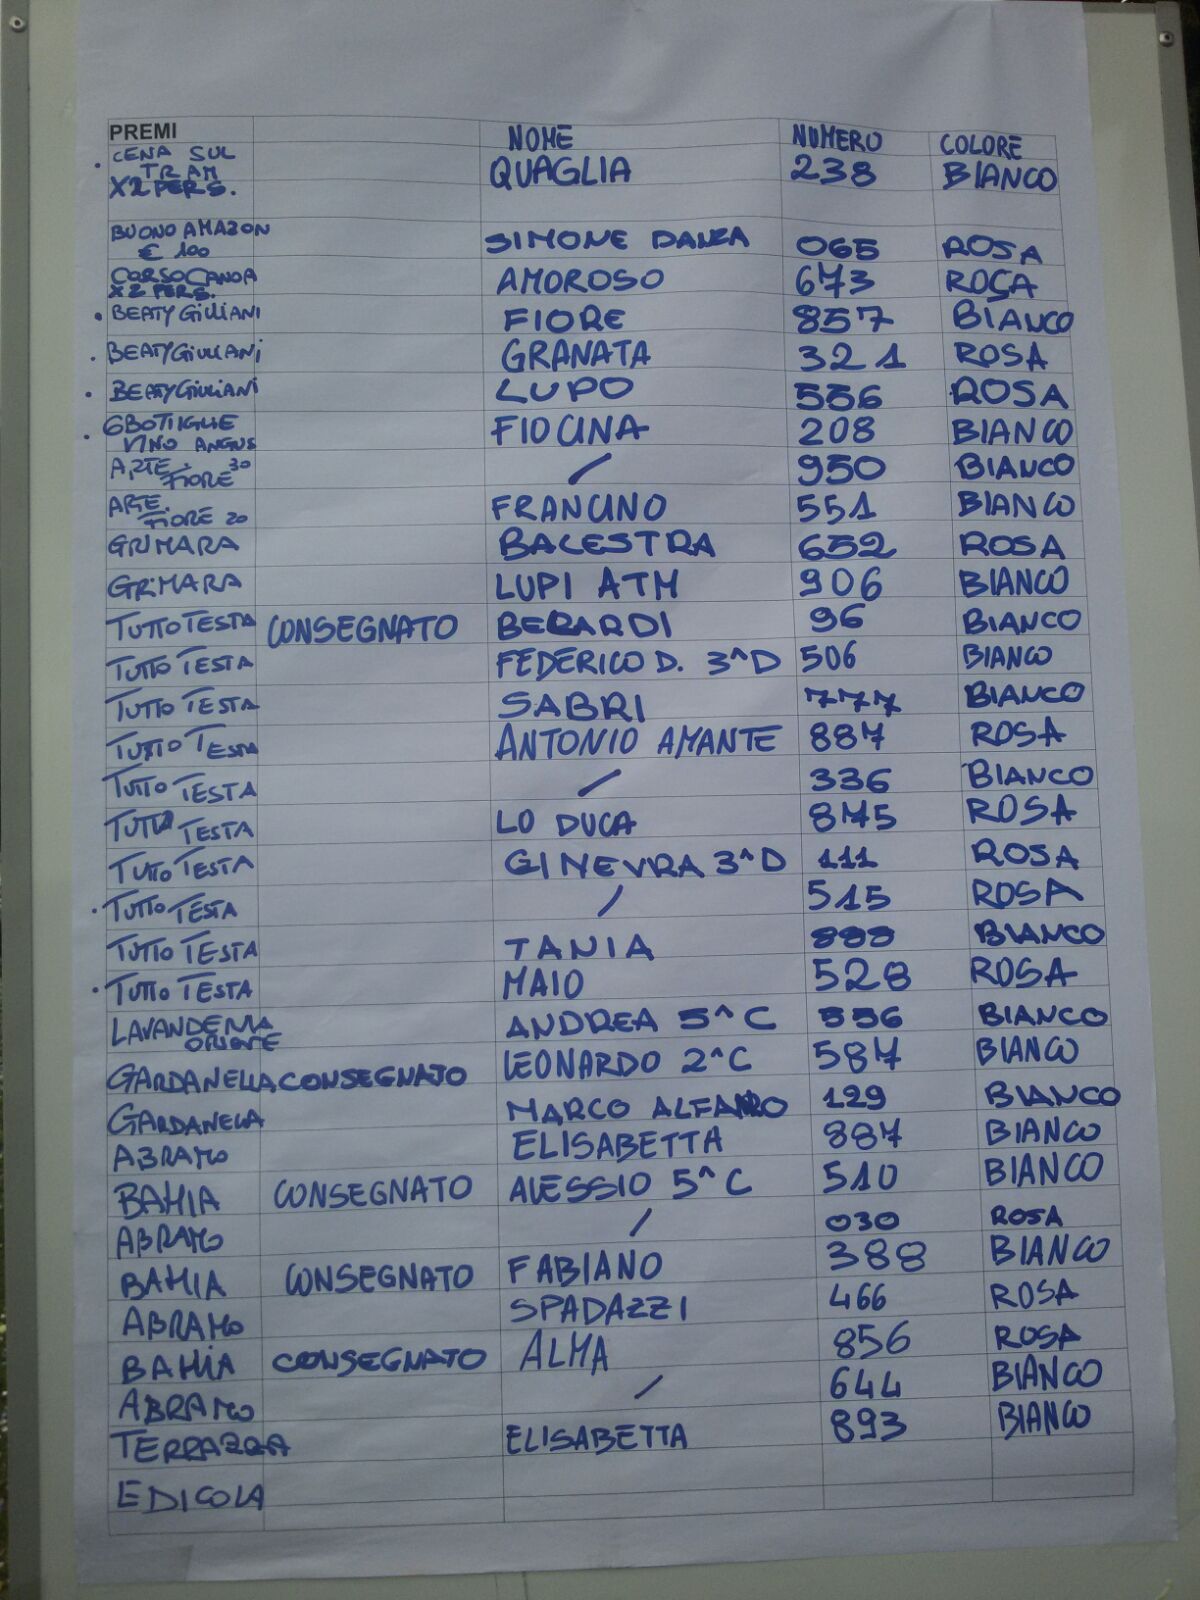 PREMI NOME NUMERO COLORE
CENA SUL
TRAM
X2 PERS. QUAGLIA 238 BIANCO
BUONO AMAZON
€ 100 SIMONE DANZA 065 ROSA
CORSO CANOA
X2 PERS. AMOROSO 673 ROSA
BEATY GIULIANI FIORE 857 BIANCO
BEATY GIULIANI GRANATA 321 ROSA
BEATY GIULIANI LUPO 556 ROSA
6 BOTTIGLIE
VINO ANGUS FIOCINA 208 BIANCO
ARTE 30
FIORE / 950 BIANCO
ARTE
FIORE 20 FRANCINO 551 BIANCO
GRIMARA BALESTRA 652 ROSA
GRIMARA LUPI ATM 906 BIANCO
TUTTO TESTA CONSEGNATO BERARDI 96 BIANCO
TUTTO TESTA FEDERICO D. 3^D 506 BIANCO
TUTTO TESTA SABRI 777 BIANCO
TUTTO TESTA ANTONIO AMANTE 887 ROSA
TUTTO TESTA / 336 BIANCO
TUTTO TESTA LO DUCA 875 ROSA
TUTTO TESTA GINEVRA 3^D 111 ROSA
TUTTO TESTA / 515 ROSA
TUTTO TESTA TANIA BIANCO
TUTTO TESTA MAIO 528 ROSA
LAVANDERIA
ORIENTE ANDREA 5^C 556 BIANCO
GARDANELLA CONSEGNATO LEONARDO 2^C 587 BIANCO
GARDANELLA MARCO ALFANO 129 BIANCO
ABRAMO ELISABETTA 887 BIANCO
BAHIA CONSEGNATO ALESSIO 5^C 510 BIANCO
ABRAMO / 030 ROSA
BAHIA CONSEGNATO FABIANO 388 BIANCO
ABRAMO SPADAZZI 466 ROSA
BAHIA CONSEGNATO ALMA 856 ROSA
ABRAMO / 644 BIANCO
TERRAZZA ELISABETTA 893 BIANCO
EDICOLA